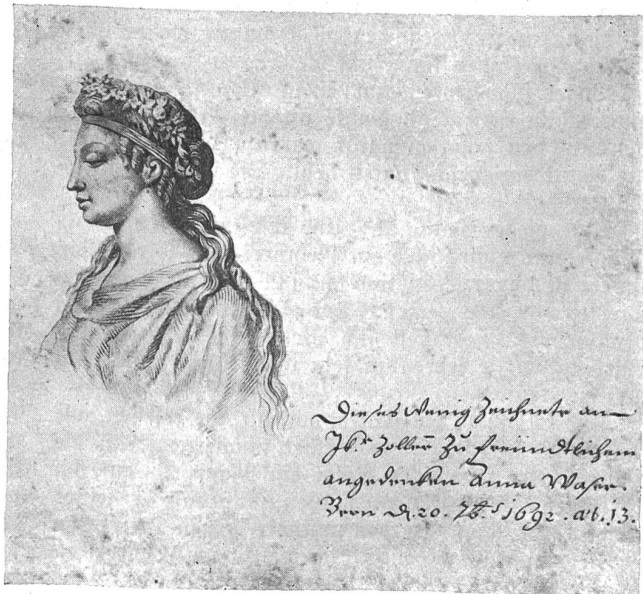 Dieses wenig Zeichnete an
Jkr. Zoller Zu freündtlichem
angedencken Anna Waser.
Bern d. 20. 7b.s 1692. æt. 13.